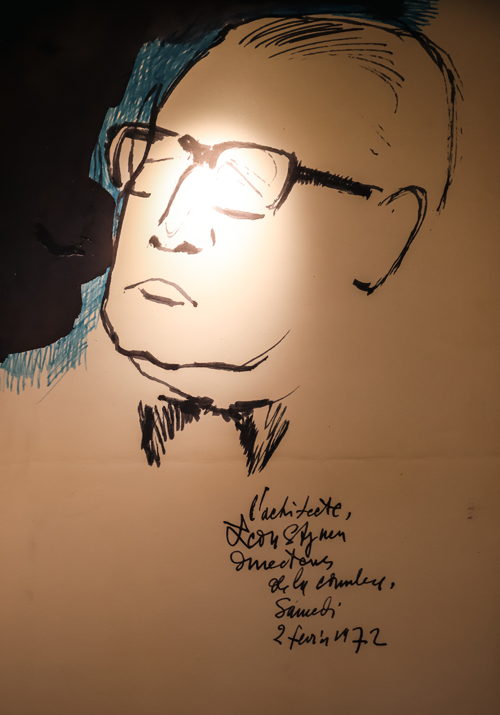 l'architecte,
Léon Stynen
directeur
de la cambre,
Samedi
2 fevrier 1972